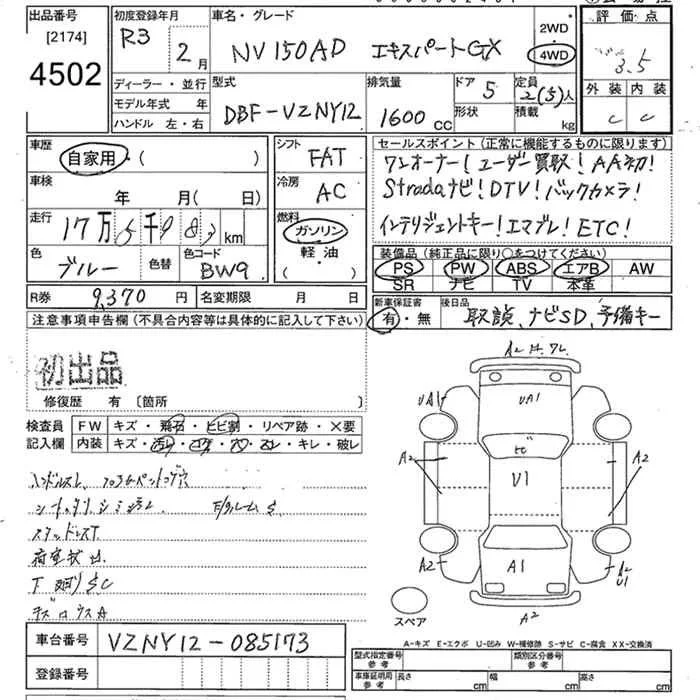 出品番号 初度登録年月 車名・グレード 評価点
[2174] R3 2月 NV150AD エキスパートGX 2WD 4WD 3.5
4502 ディーラー・並行 型式 排気量 ドア 定員 外装 内装
モデル年式 年 DBF-VZNY12 1600CC 5 2(5)人 C C
ハンドル 左・右 形状 積載 kg
車歴 シフト セールスポイント(正常に機能するものに限ります)
自家用・( ) FAT ワンオーナー!ユーザー買取!AA初!
車検 冷房 Stradaナビ!DTV!バックカメラ!
年 月(日) AC インテリジェントキー!エマブレ!ETC!
走行 燃料
17万 千 km ガソリン
色 色替 色コード 軽・油 装備品(純正品に限り○をつけてください)
ブルー BW9 ( ) PS PW ABS エアB AW
SR ナビ TV 本革
R券 9,370円 名変期限 月 日 新車保証書 後日品
注意事項申告欄(不具合内容等は具体的に記入して下さい) 有・無 取説、ナビSD、予備キー
初出品
修復歴 有〔箇所 〕
検査員 FW キズ・飛石・ヒビ割・リペア跡・×要
記入欄 内装 キズ・キレ・破レ
UA1 UA1
A2 U1 A2
A2 A1 A2
U1
A2
スタッドレスT
下廻りSC
スペア
A-キズ E-エクボ U-凹み W-補修跡 S-サビ C-腐食 XX-交換済
車台番号 VZNY12-085173 型式指定番号 参考 類別区分番号 参考
登録番号 車庫証明用 参考 長さ cm 幅 cm 高さ cm